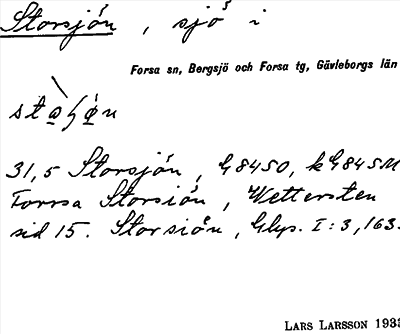 Storsjön , sjö i
Forsa sn, Bergsjö och Forsa tg, Gävleborgs län
31,5 Storsjön , G84SO, kG84SM
Forrsa Storsiön , Wettersten
sid 15. Storsiön , Glys. I:3,163.
LARS LARSSON 1933